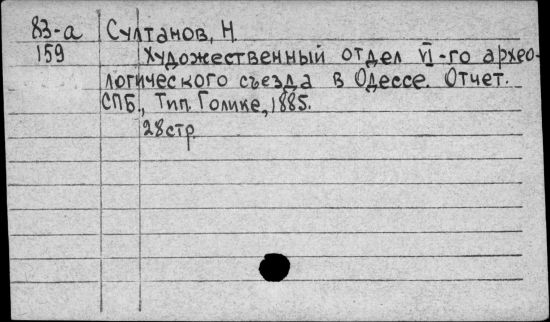 83-а Султанов, Н.
159 Художественный отдел VI-го архео-
логического съезда в Одессе. Отчет.
СПБ., Тип. Голике, 1885.
28 стр.